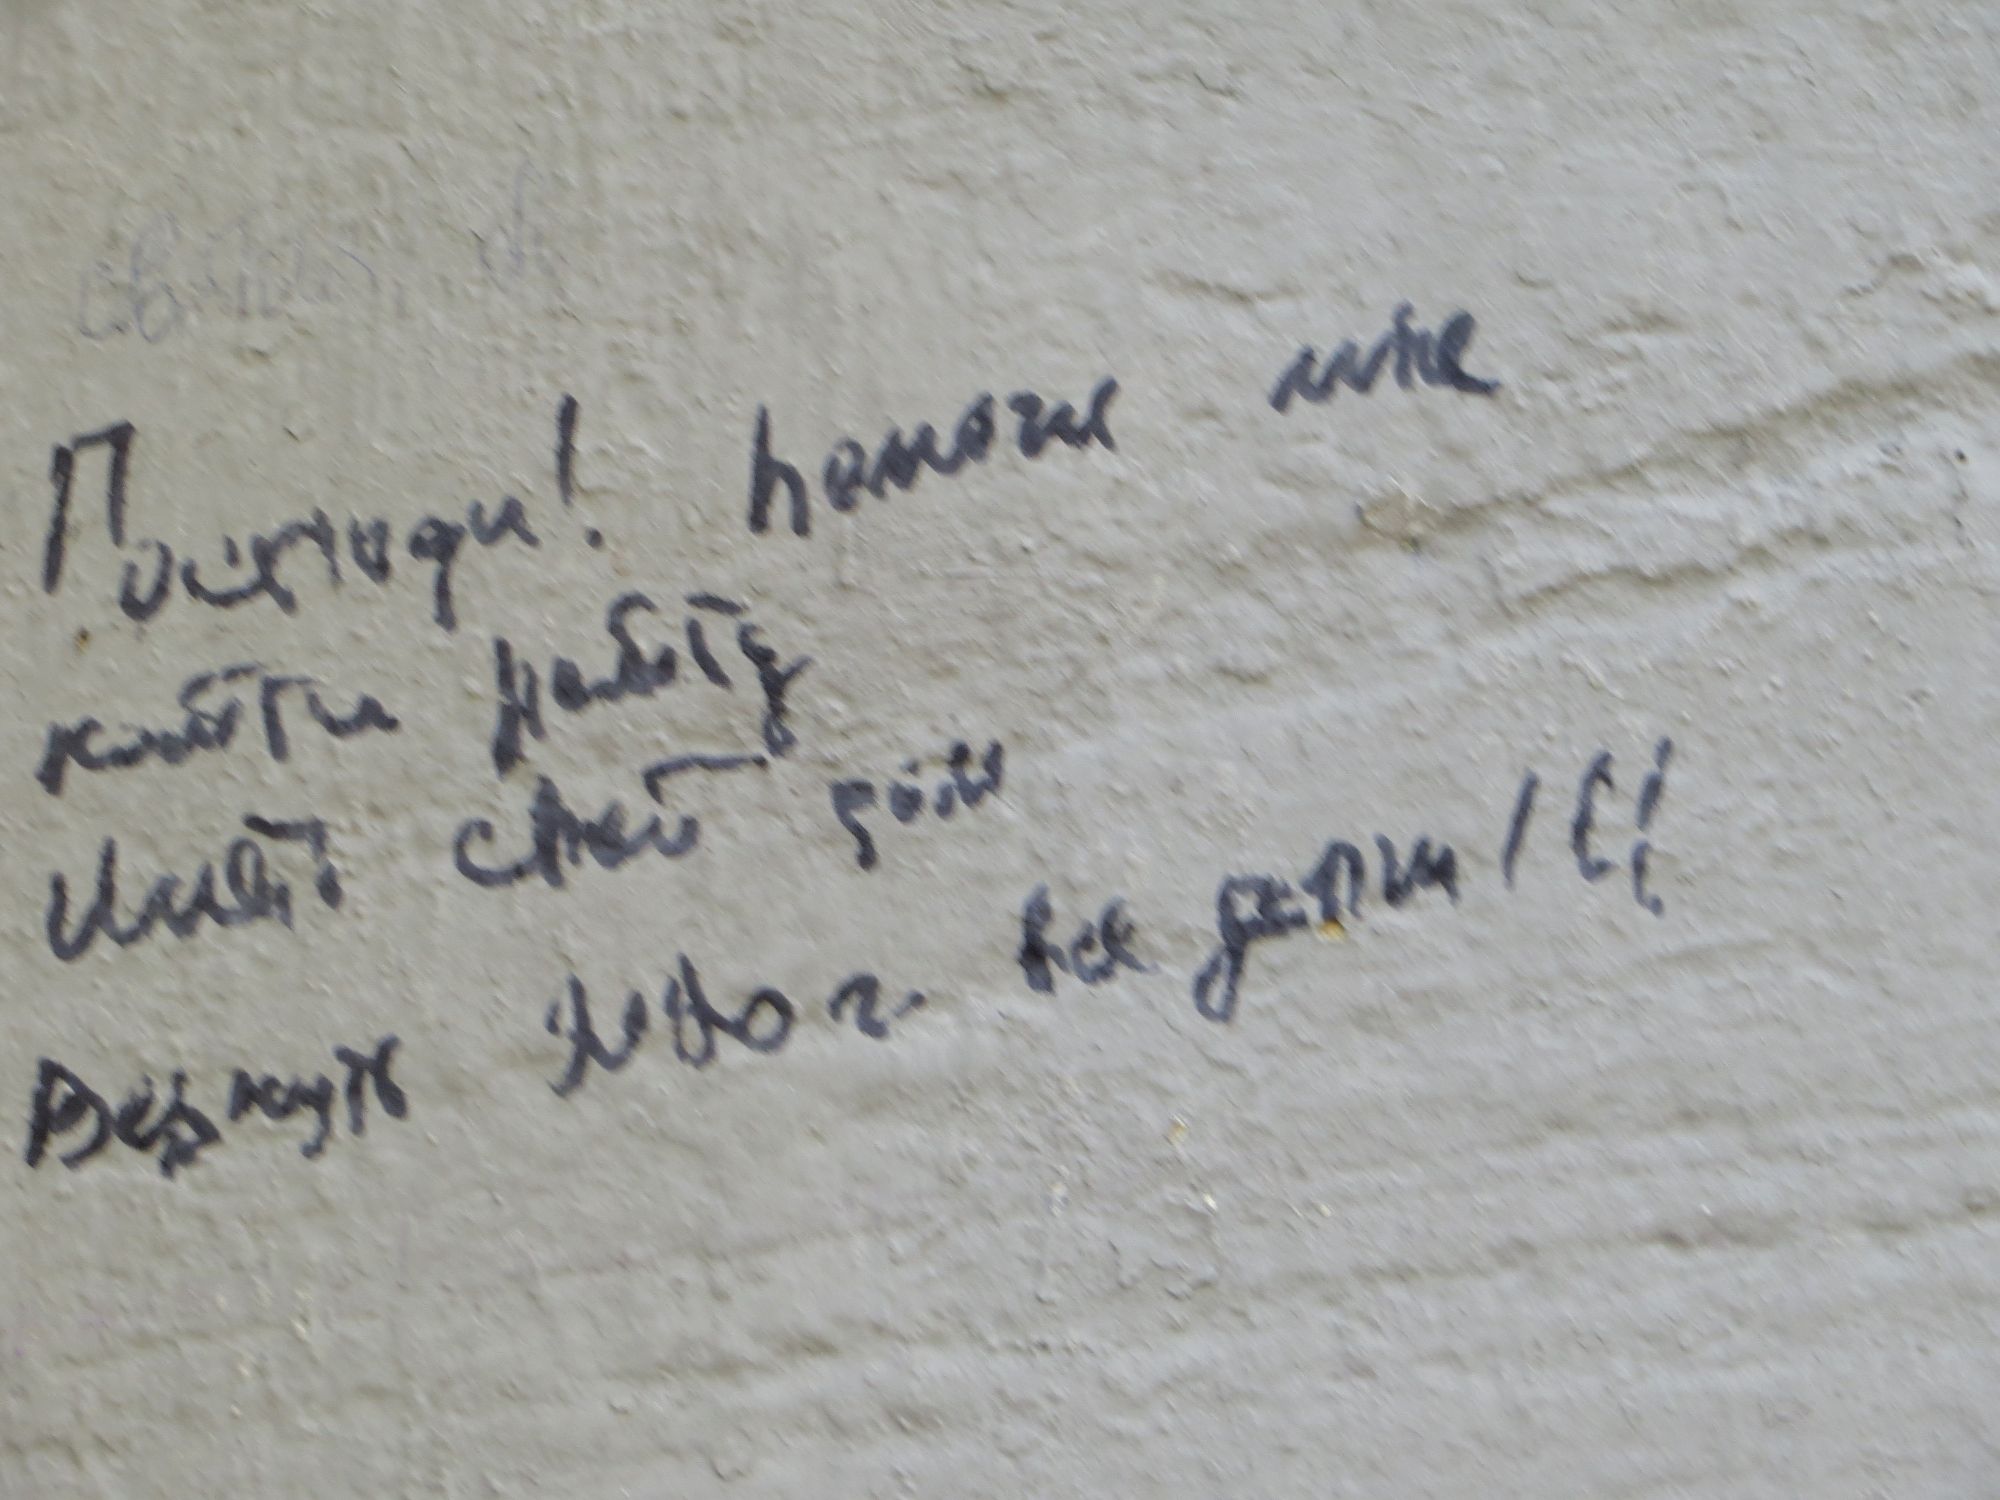 Господи! помоги мне
найти работу
Иметь свой дом
Вернуть все долги!!!